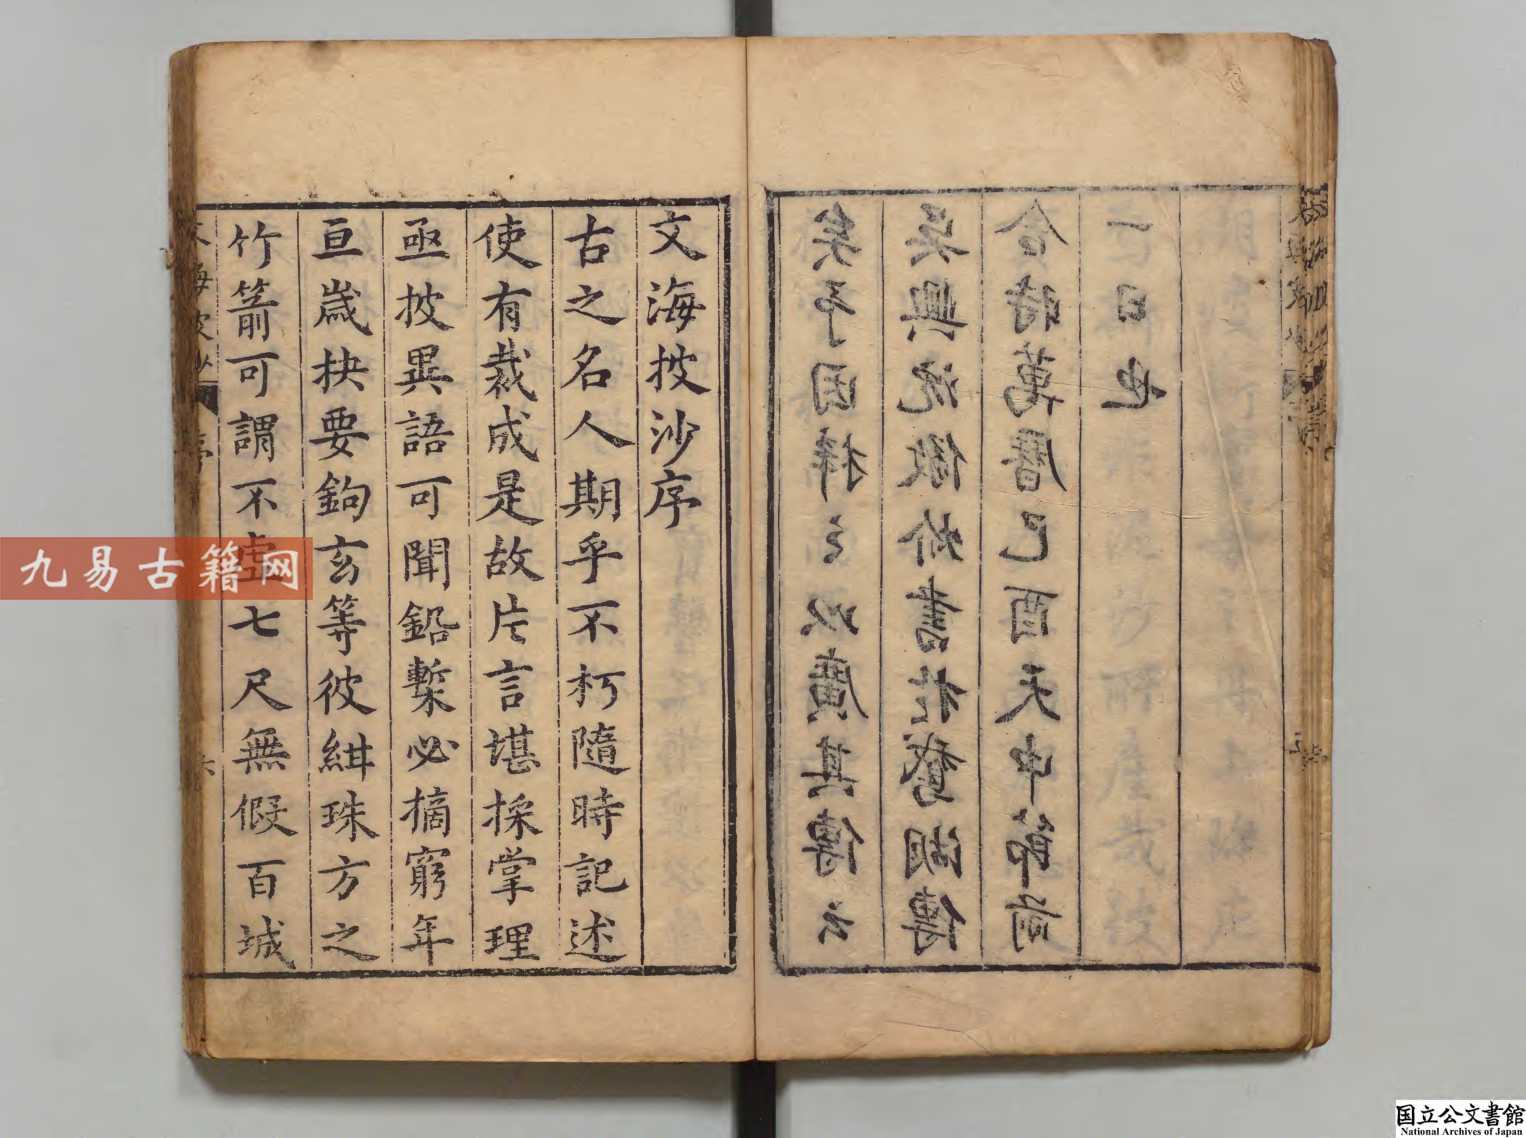 矣予因梓之以廣其傳云
吳興沈儆炌書於鵞湖傳
舍時萬曆己酉天中節前
二日也
文海披沙序
古之名人期乎不朽隨時記述
使有裁成是故片言堪採掌理
亟披異語可聞鉛槧必摘窮年
亘歲抉要鉤玄等彼紺珠方之
竹箭可謂不虛七尺無假百城
文海披沙 序 六
九易古籍网
国立公文書館
National Archives of Japan